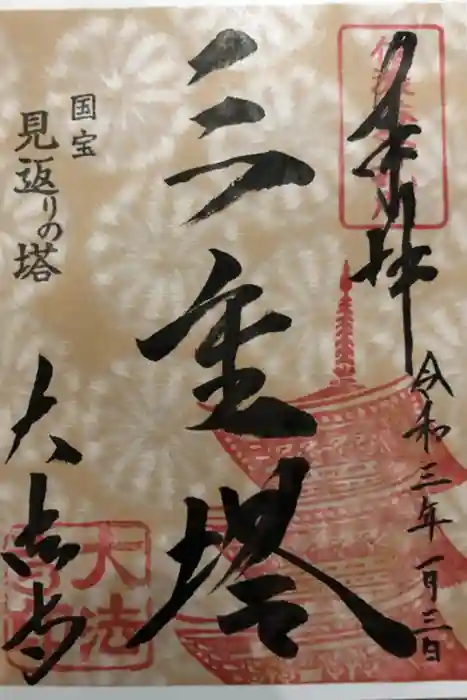 奉拝
令和三年一月三日
三重塔
国宝
見返りの塔
大法寺
大法